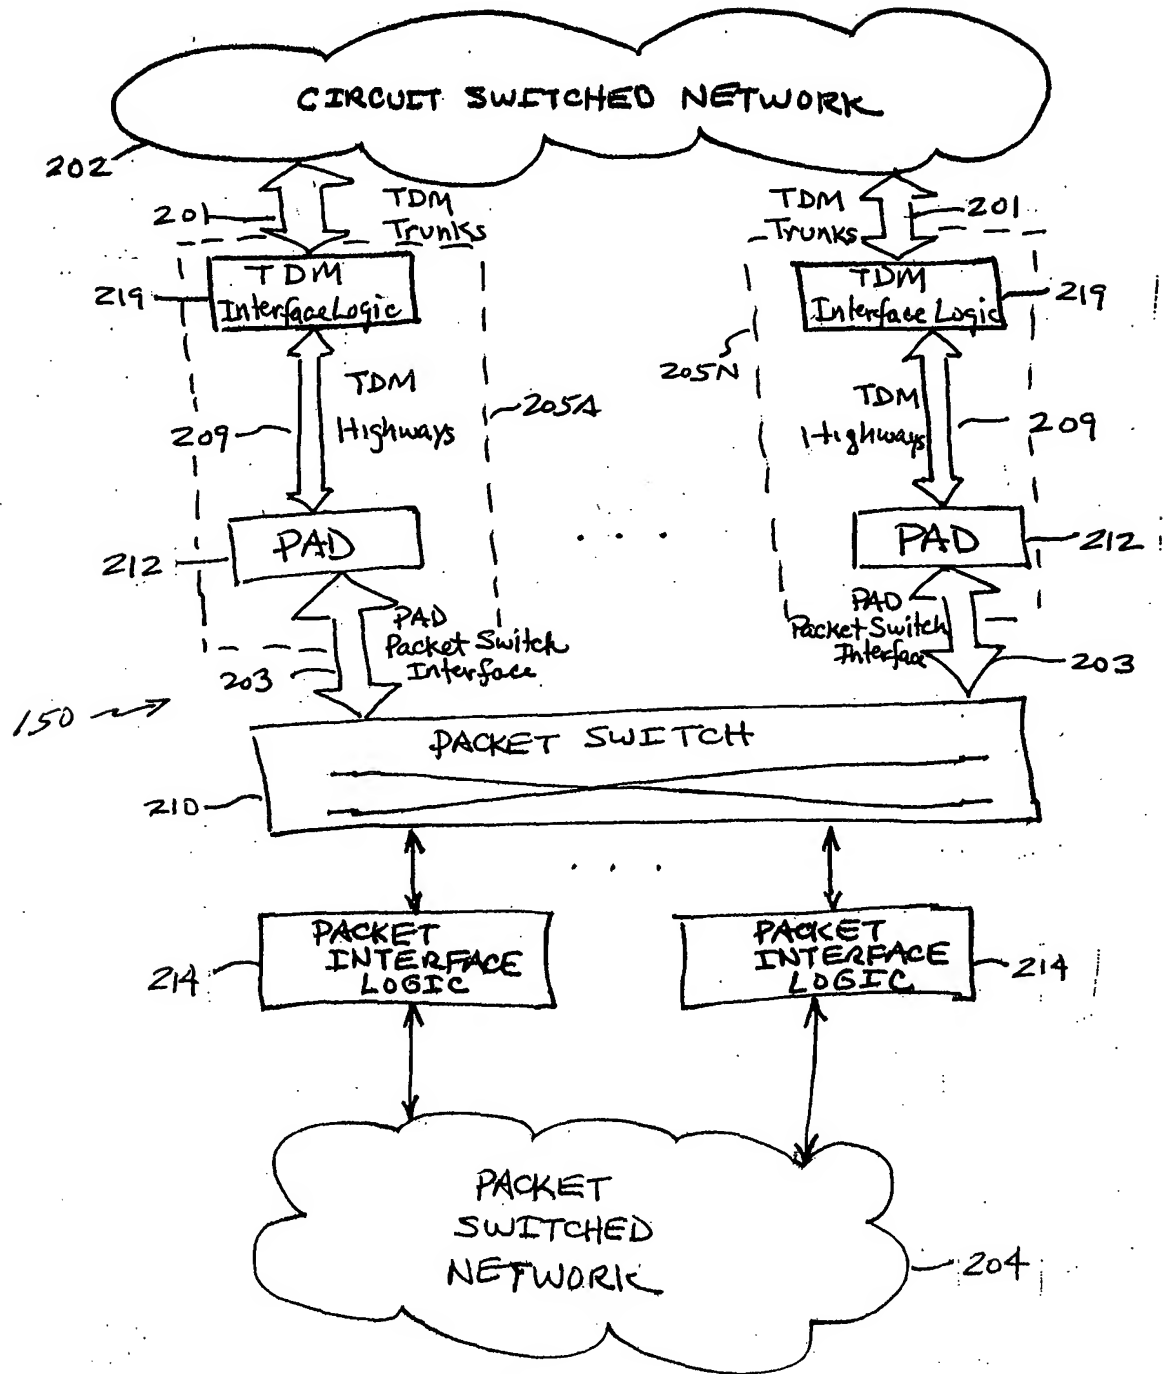 CIRCUIT SWITCHED NETWORK
202
201
TDM
Trunks
TDM
Trunks
201
219
TDM
Interface Logic
TDM
Interface Logic
219
205A
205N
209
TDM
Highways
TDM
Highways
209
212
PAD
. . .
PAD
212
PAD
Packet Switch
Interface
203
PAD
Packet Switch
Interface
203
150
PACKET SWITCH
210
. . .
214
PACKET
INTERFACE
LOGIC
PACKET
INTERFACE
LOGIC
214
PACKET
SWITCHED
NETWORK
204